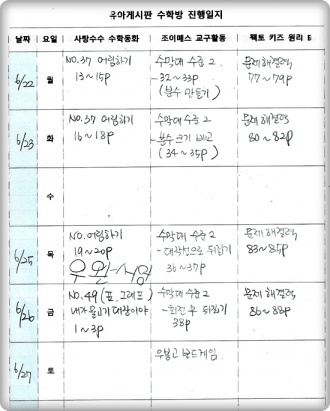 유아게시판 수학방 진행일지
날짜 요일 사탕수수 수학동화 조이매스 교구활동 팩토 키즈 원리 B
6/22 월 NO.37 어림하기 수막대 수준 2 문제해결력
13~15p - 32~33p 77~79p
(분수 만들기)
6/23 화 NO.37 어림하기 수막대 수준 2 문제해결력
16~18p - 분수 크기 비교 80~82p
(34~35p)
수
6/25 목 NO.어림하기 수막대 수준 2 문제해결력
19~20p - 대각선으로 뒤집기 83~85p
36~37p
6/26 금 NO.49 (표, 그래프) 수막대 수준 2 문제해결력
내가 물고기 대장이야 - 회전 후 뒤집기 86~88p
1~3p 38p
6/27 토 우봉고 보드게임